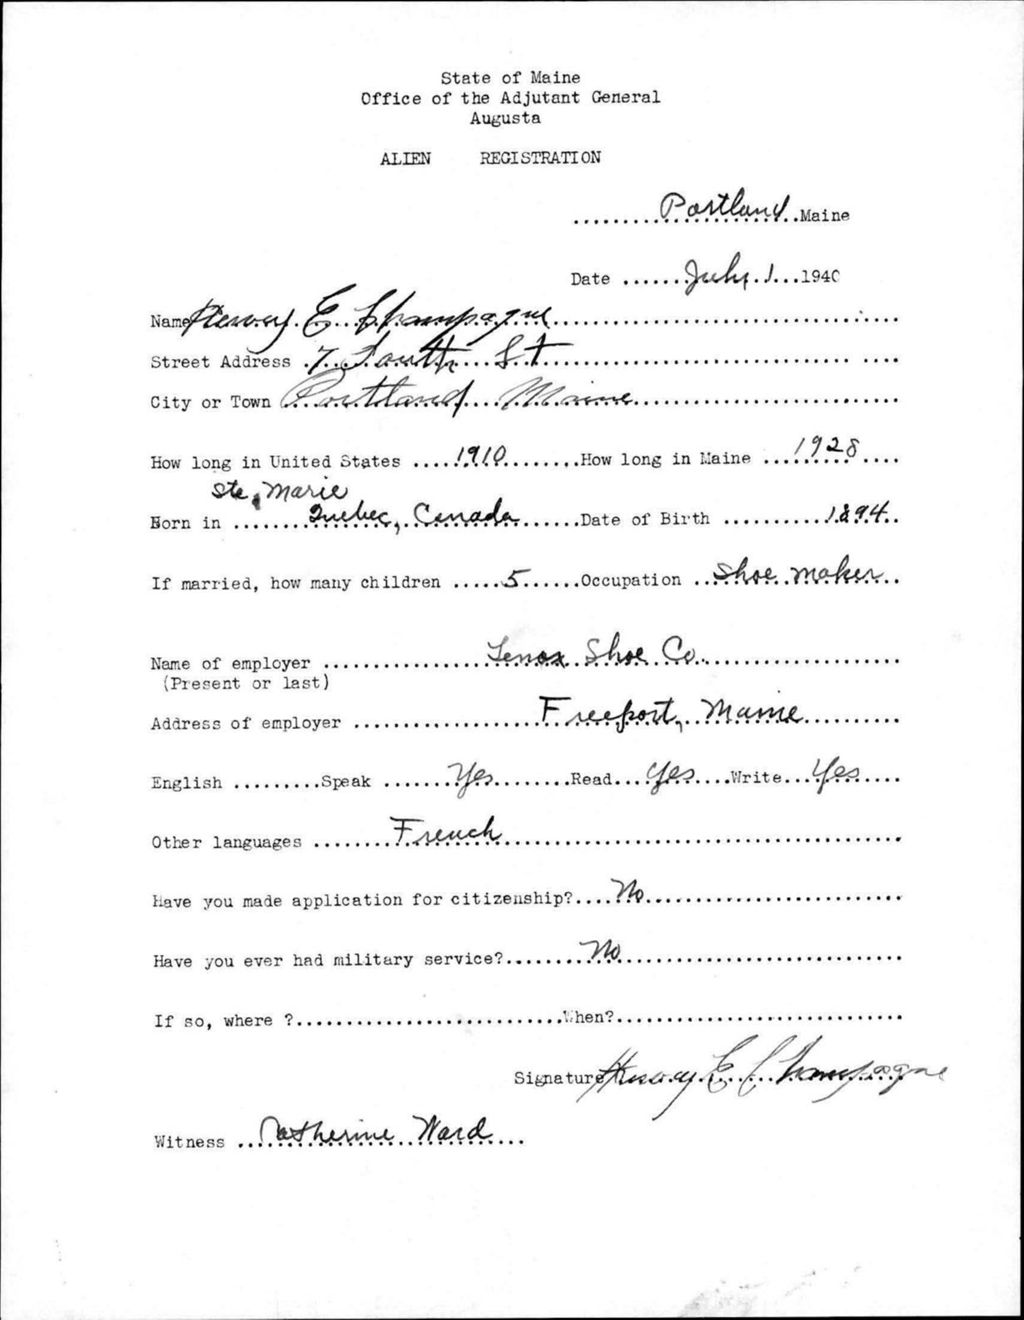 State of Maine
Office of the Adjutant General
Augusta
ALIEN REGISTRATION
.........Portland..Maine
Date .......July.1...1940
Name Hervey E Champagne
Street Address .7. South St
City or Town Portland Maine
How long in United States ....1910........How long in Maine ...1928....
Ste. Marie
Born in ........Quebec, Canada......Date of Birth ...........1894..
If married, how many children .....5......Occupation ..Shoe maker..
Name of employer ................Lenox Shoe Co.
(Present or last)
Address of employer ..................Freeport, Maine
English .........Speak .......Yes........Read...Yes....Write...Yes....
Other languages ........French
Have you made application for citizenship?....No
Have you ever had military service?........No
If so, where ?..........................When?............................
Signature Hervey E Champagne
Witness ...Catherine Ward...